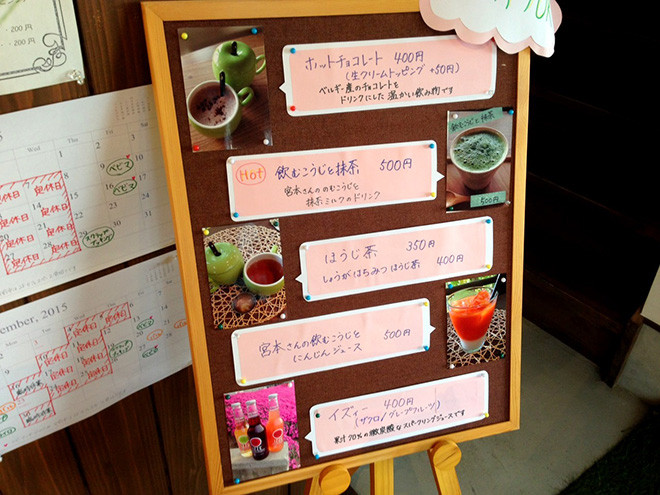 ホットチョコレート 400円
(生クリームトッピング +50円)
ベルギー産のチョコレートを
ドリンクにした温かい飲み物です
Hot 飲むこうじと抹茶 500円
宮本さんののむこうじと
抹茶ミルクのドリンク
飲むこうじと抹茶
500円
ほうじ茶 350円
しょうがはちみつほうじ茶 400円
宮本さんの飲むこうじと 500円
にんじんジュース
イズィー 400円
(ザクロ/グレープフルーツ)
果汁70%の微炭酸なスパークリングジュースです
200円
200円
Wed
Thu
Fri
定休日
定休日
定休日
定休日
定休日
定休日
ベビマ
ベビマ
ember, 2015
定休日
定休日
定休日
定休日